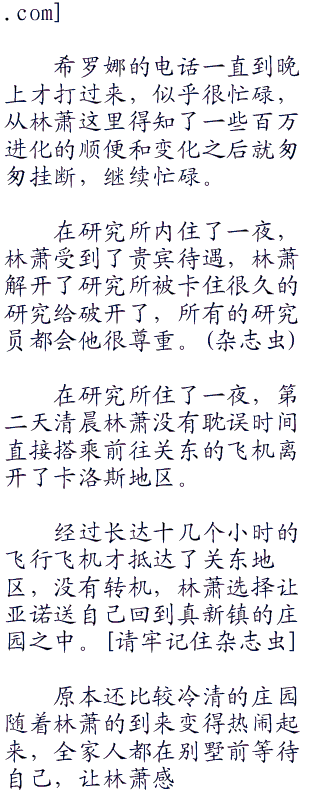 .com]
希罗娜的电话一直到晚
上才打过来，似乎很忙碌，
从林萧这里得知了一些百万
进化的顺便和变化之后就匆
匆挂断，继续忙碌。
在研究所内住了一夜，
林萧受到了贵宾待遇，林萧
解开了研究所被卡住很久的
研究给破开了，所有的研究
员都会他很尊重。(杂志虫)
在研究所住了一夜，第
二天清晨林萧没有耽误时间
直接搭乘前往关东的飞机离
开了卡洛斯地区。
经过长达十几个小时的
飞行飞机才抵达了关东地
区，没有转机，林萧选择让
亚诺送自己回到真新镇的庄
园之中。[请牢记住杂志虫]
原本还比较冷清的庄园
随着林萧的到来变得热闹起
来，全家人都在别墅前等待
自己，让林萧感